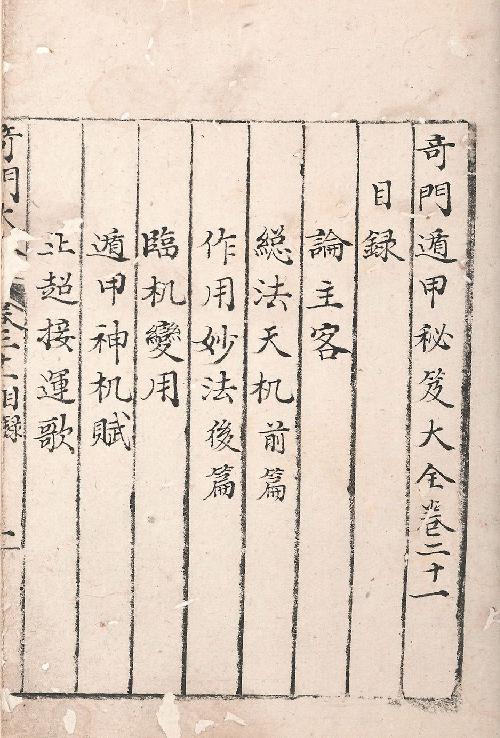 竒門遁甲秘笈大全卷二十一
目録
論主客
緫法天机前篇
作用妙法後篇
臨机變用
遁甲神机賦
超接運歌
竒門大
卷二十一目録